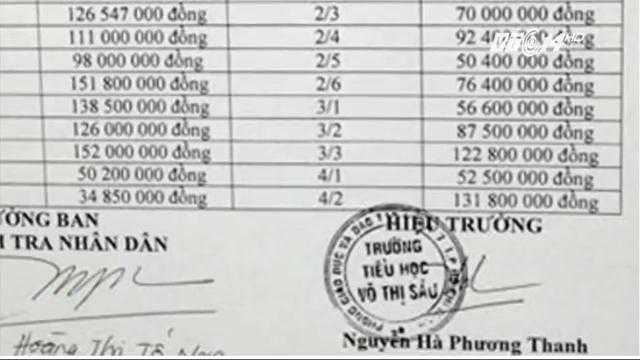 126 547 000 đồng 2/3 70 000 000 đồng
111 000 000 đồng 2/4 92 400 000 đồng
98 000 000 đồng 2/5 50 400 000 đồng
151 800 000 đồng 2/6 76 400 000 đồng
138 500 000 đồng 3/1 56 600 000 đồng
126 000 000 đồng 3/2 87 500 000 đồng
152 000 000 đồng 3/3 122 800 000 đồng
50 200 000 đồng 4/1 52 500 000 đồng
34 850 000 đồng 4/2 131 800 000 đồng
ƯỞNG BAN HIỆU TRƯỞNG
TRA NHÂN DÂN
TRƯỜNG
TIỂU HỌC
VÕ THỊ SÁU
PHÒNG GIÁO DỤC VÀ ĐÀO
Hoàng Thị Tố
Nguyễn Hà Phương Thanh